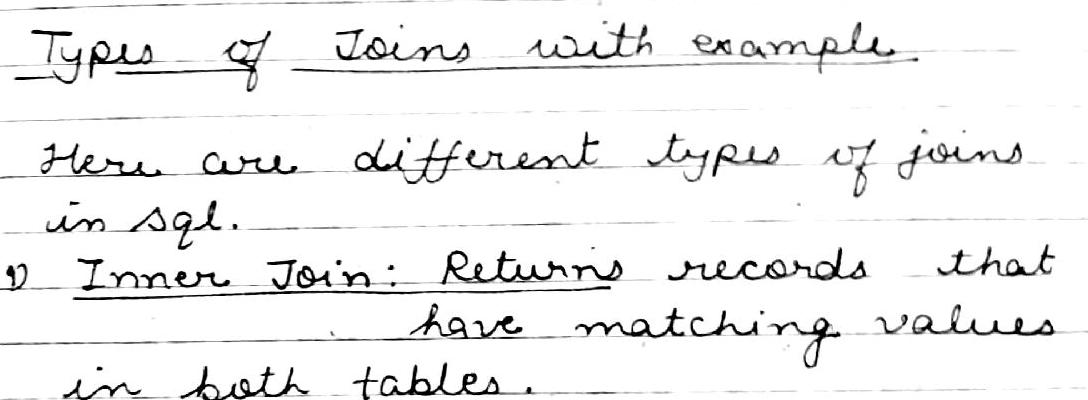 Types of Joins with example
Here are different types of joins
in sql.
1) Inner Join: Returns records that
have matching values
in both tables.